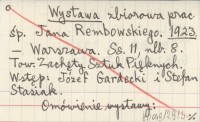 Wystawa zbiorowa prac
śp. Jana Rembowskiego. 1923
– Warszawa. Ss. 11, nlb. 8.
Tow. Zachęty Sztuk Pięknych.
Wstęp: Józef Gardecki i Stefan
Stasiak.
Omówienie wystawy: